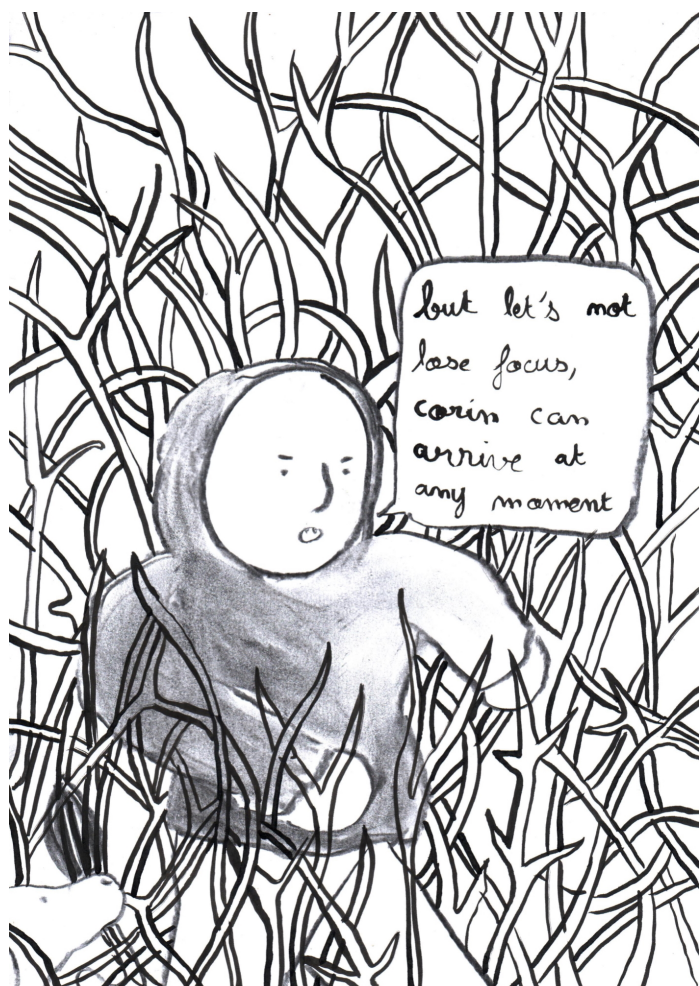 but let's not
lose focus,
corin can
arrive at
any moment